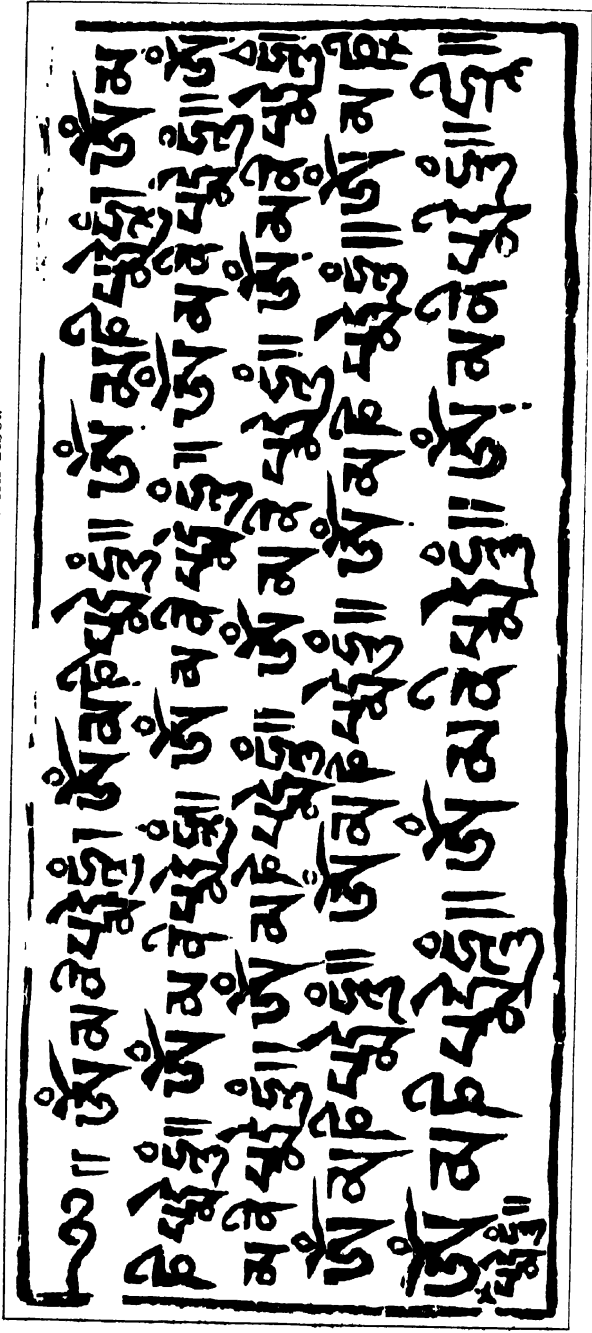 ༄། །ཨོཾ་མ་ཎི་པདྨེ་ཧཱུྃ། ཨོཾ་མ་ཎི་པདྨེ་ཧཱུྃ། །ཨོཾ་མ་ཎི་པདྨེ་ཧཱུྃ། ཨོཾ་མ་
ཎི་པདྨེ་ཧཱུྃ། །ཨོཾ་མ་ཎི་པདྨེ་ཧཱུྃ། །ཨོཾ་མ་ཎི་པདྨེ་ཧཱུྃ། །ཨོཾ་མ་ཎི་པདྨེ་ཧཱུྃ། །ཨོཾ་
མ་ཎི་པདྨེ་ཧཱུྃ། །ཨོཾ་མ་ཎི་པདྨེ་ཧཱུྃ། །ཨོཾ་མ་ཎི་པདྨེ་ཧཱུྃ། །ཨོཾ་མ་ཎི་པདྨེ་ཧཱུྃ། །
ཨོཾ་མ་ཎི་པདྨེ་ཧཱུྃ། །ཨོཾ་མ་ཎི་པདྨེ་ཧཱུྃ། །ཨོཾ་མ་ཎི་པདྨེ་ཧཱུྃ། །ཨོཾ་མ་ཎི་
པདྨེ་ཧཱུྃ། །
ཨོཾ་མ་ཎི་པདྨེ་ཧཱུྃ། །ཨོཾ་མ་ཎི་པདྨེ་ཧཱུྃ། །ཨོཾ་མ་ཎི་པདྨེ་ཧཱུྃ། །ཧྲཱི། །